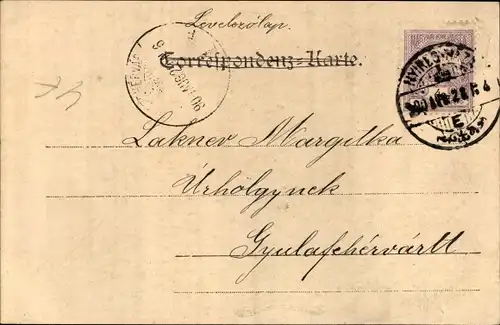 Levelezőlap.
Correspondenz-Karte.
Lakner Margitka
Úrhölgynek
Gyulafehérvártt